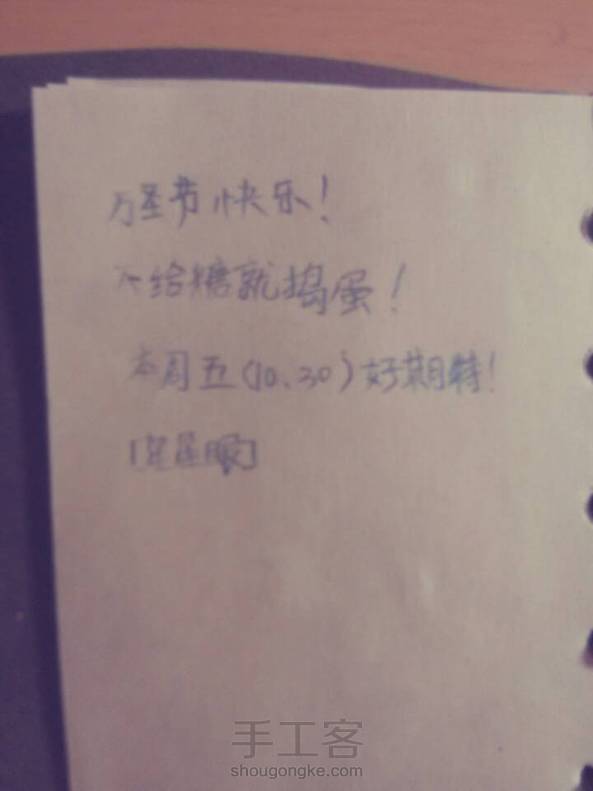 万圣节快乐！
不给糖就捣蛋！
本周五（10、30）好期待！
[星星眼]
手工客
shougongke.com